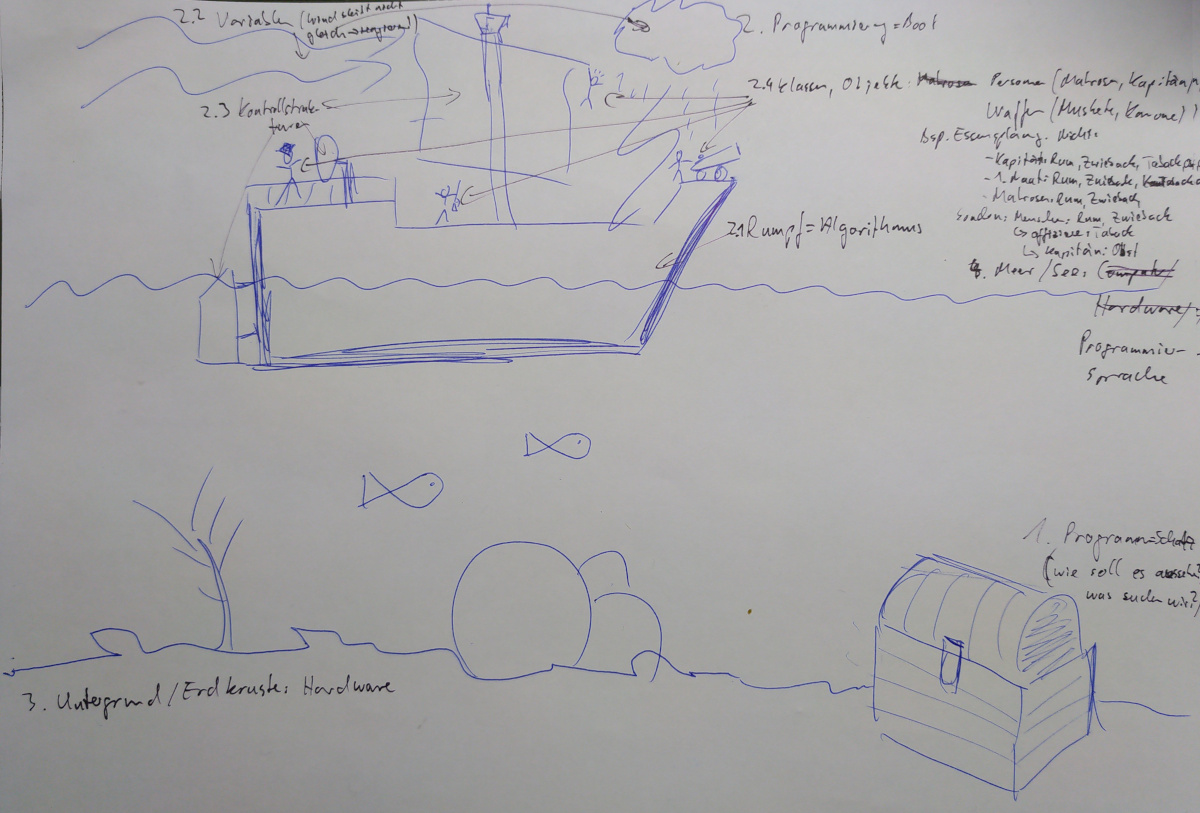 2.2 Variablen (Wind bleibt nicht
gleich → reagieren)
2. Programmierung = Boot
2.3 Kontrollstruk-
turen
2.4 Klassen, Objekte: Personen (Matrosen, Kapitän
Waffen (Muskete, Kanone)
Bsp. Essensplanung. Nicht:
- Kapitän: Rum, Zwieback, Taback,
- 1. Maat: Rum, Zwieback,
- Matrosen: Rum, Zwieback
sondern: Menschen: Rum, Zwieback
↳ Offiziere: Taback
↳ Kapitän: Obst
2.1 Rumpf = Algorithmus
4. Meer/See: (Computer/
Hardware/
Programmier-
sprache
1. Programm=Schatz
(wie soll es aussehen?
was suchen wir?)
3. Untergrund/Erdkruste: Hardware